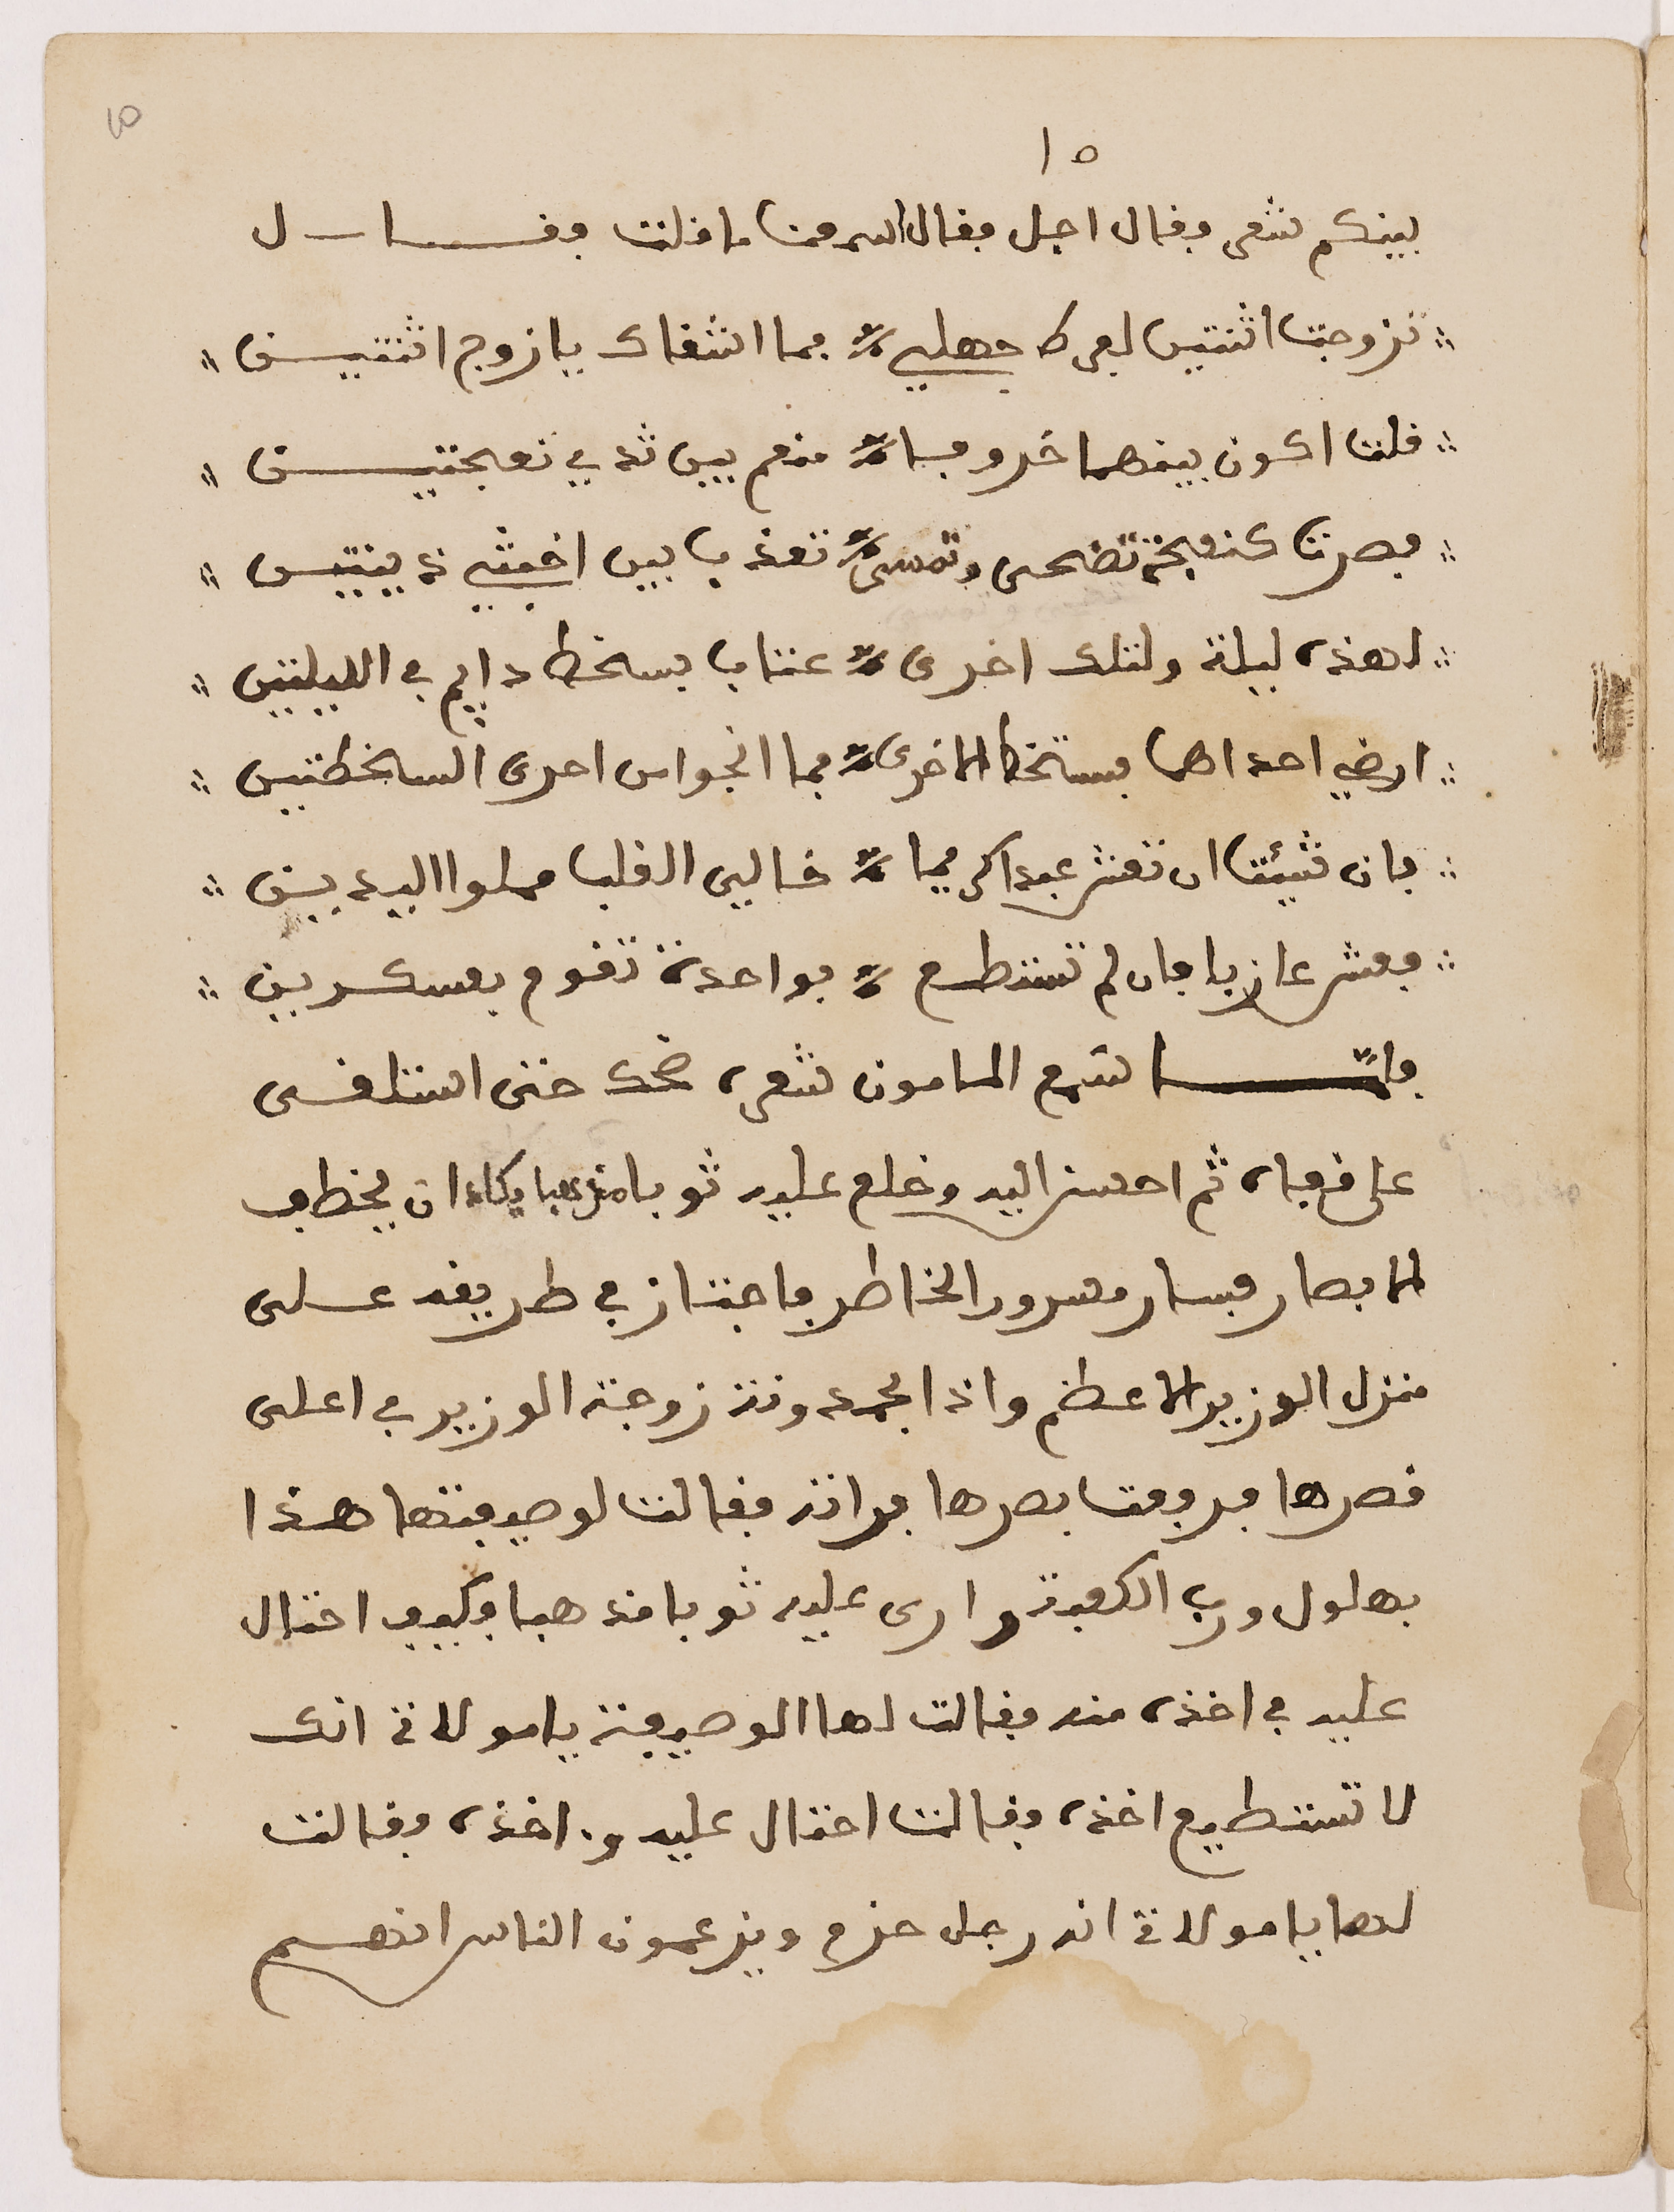 ١٥
بينكم شعر فقال اجل فقال اسمعنا ما قلت فقـــال
تزوجت اثنتين لفرط جهلي فما اشقاك يا زوج اثنتيـــن
فلت اكون بينهما خروفا منعم بين ثديي نعجتيـــن
فصرت كنعجة تضحى وتمسى تعذب بين اخبثي ذيبتين
لهذه ليلة ولتلك اخرى عتاب بسخط دايم في الليلتين
ارضي احداهما فستخط الاخرى فما انجو من احدى السخطتين
فان شيئت ان تعش عبدا كريما خالي القلب مملوا اليديـن
فعش عازبا فان لم تستطع فواحدة تقوم بعسكرين
فلمـــا سمع المامون شعره ضحك حتى استلقى
على قفاه ثم احسن اليه وخلع عليه ثوبا مذهبا يكاد ان يخطف
الابصار فسار مسرور الخاطر فاجتاز في طريقه عــلى
منزل الوزير الاعظم واذا بحمدونة زوجة الوزير في اعلى
قصرها فرفعت بصرها فراته فقالت لوصيفتها هــذا
بهلول ورب الكعبة وارى عليه ثوبا مذهبا وكيف احتال
عليه في اخذه منه فقالت لها الوصيفة يا مولاتي انك
لا تستطيع اخذه فقالت احتال عليه واخذه فقالت
لها يا مولاتي انه رجل حزم ويزعمون الناس انهـــم